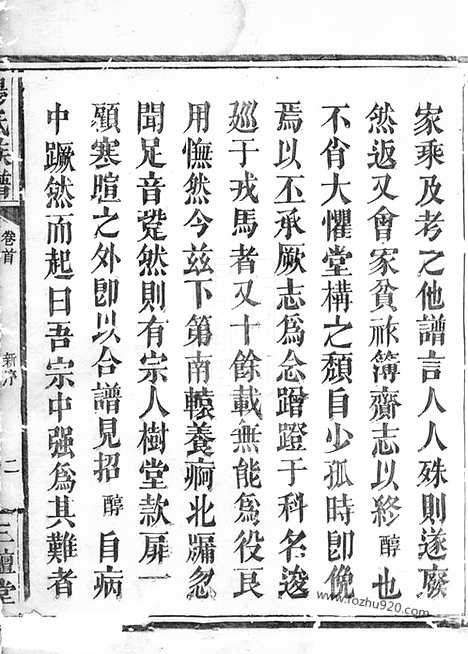 家乘及考之他譜言人人殊則遂廢
然返又會家貧祿簿齎志以終醇也
不省大懼堂構之頹自少孤時卽俛
焉以丕承厥志為念蹭蹬于科名逡
巡于戎馬者又十餘載無能為役良
用憮然今玆下第南轅養痾北牖忽
聞足音跫然則有宗人樹堂款扉一
顧寒暄之外卽以合譜見招醇自病
中蹶然而起曰吾宗中强為其難者
楊氏族譜
卷首
新序
二
三鱣堂
www.fozhu920.com